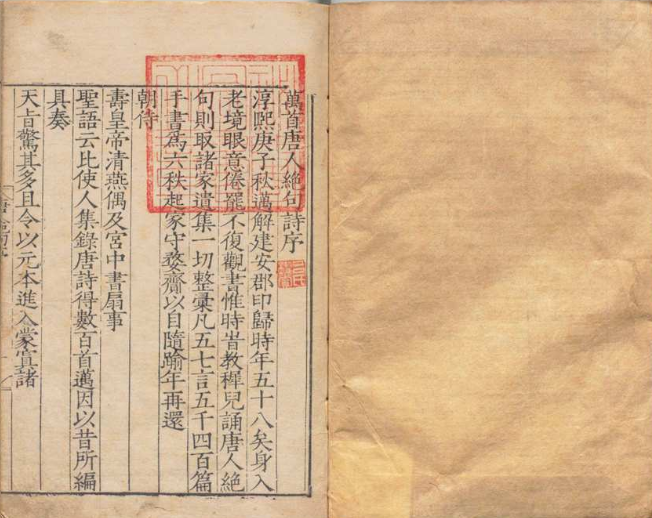 萬首唐人絶句詩序
淳熙庚子秋邁解建安郡印歸時年五十八矣身入
老境眼意倦罷不復觀書惟時昔教穉兒誦唐人絶
句則取諸家遺集一切整彙凡五七言五千四百篇
手書爲六秩起家守婺齎以自隨踰年再還
朝侍
壽皇帝清燕偶及宮中書扇事
聖語云比使人集錄唐詩得數百首邁因以昔所編
具奏
天㫖驚其多且令以元本進入蒙寘諸